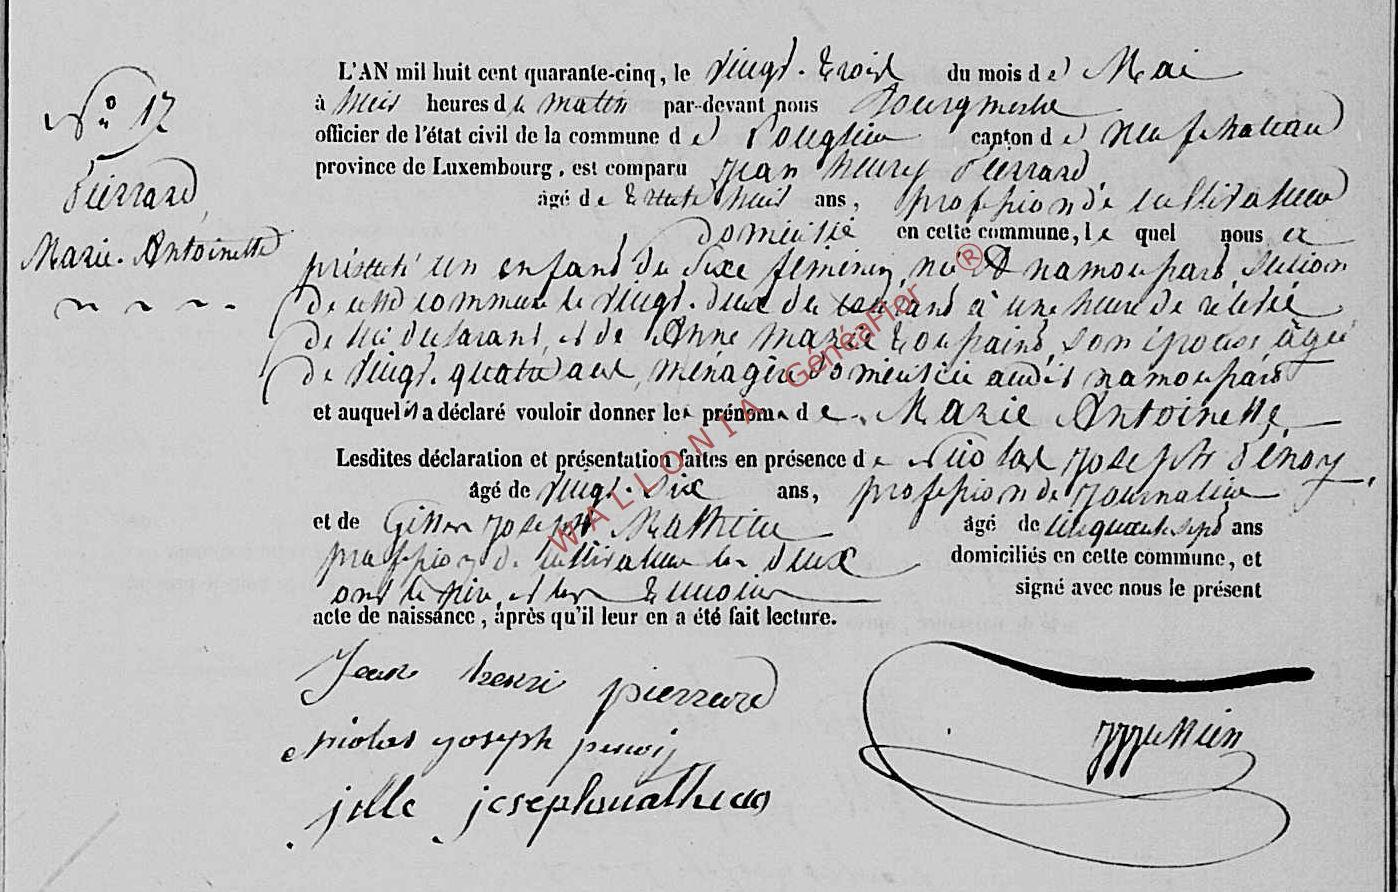 N° 17
Pierrard,
Marie-Antoinette
L'AN mil huit cent quarante-cinq, le vingt-trois du mois de Mai
à huit heures du matin par-devant nous Bourgmestre
officier de l'état civil de la commune de canton de neufchateau
province de Luxembourg, est comparu Jean henry Pierrard,
âgé de trente huit ans, profession de cultivateur
domicilié en cette commune, lequel nous a
présenté un enfant du sexe féminin, né à namoupard, section
de cette commune le vingt-deux du courant à une heure de relevée
de lui déclarant, et de Anne Marie son épouse âgée
de vingt-quatre ans, ménagère domiciliée audit namoupard
et auquel il a déclaré vouloir donner les prénoms de Marie Antoinette,
Lesdites déclaration et présentation faites en présence de Nicolas Joseph
âgé de vingt-six ans, profession de journalier
et de Joseph Mathieu âgé de cinquante sept ans
profession de cultivateur les deux domiciliés en cette commune, et
ont le père, et les témoins signé avec nous le présent
acte de naissance, après qu'il leur en a été fait lecture.
Jean henri pierrard
nicolas joseph
jille joseph mathieu
WALLONIA GénéaFlor ®